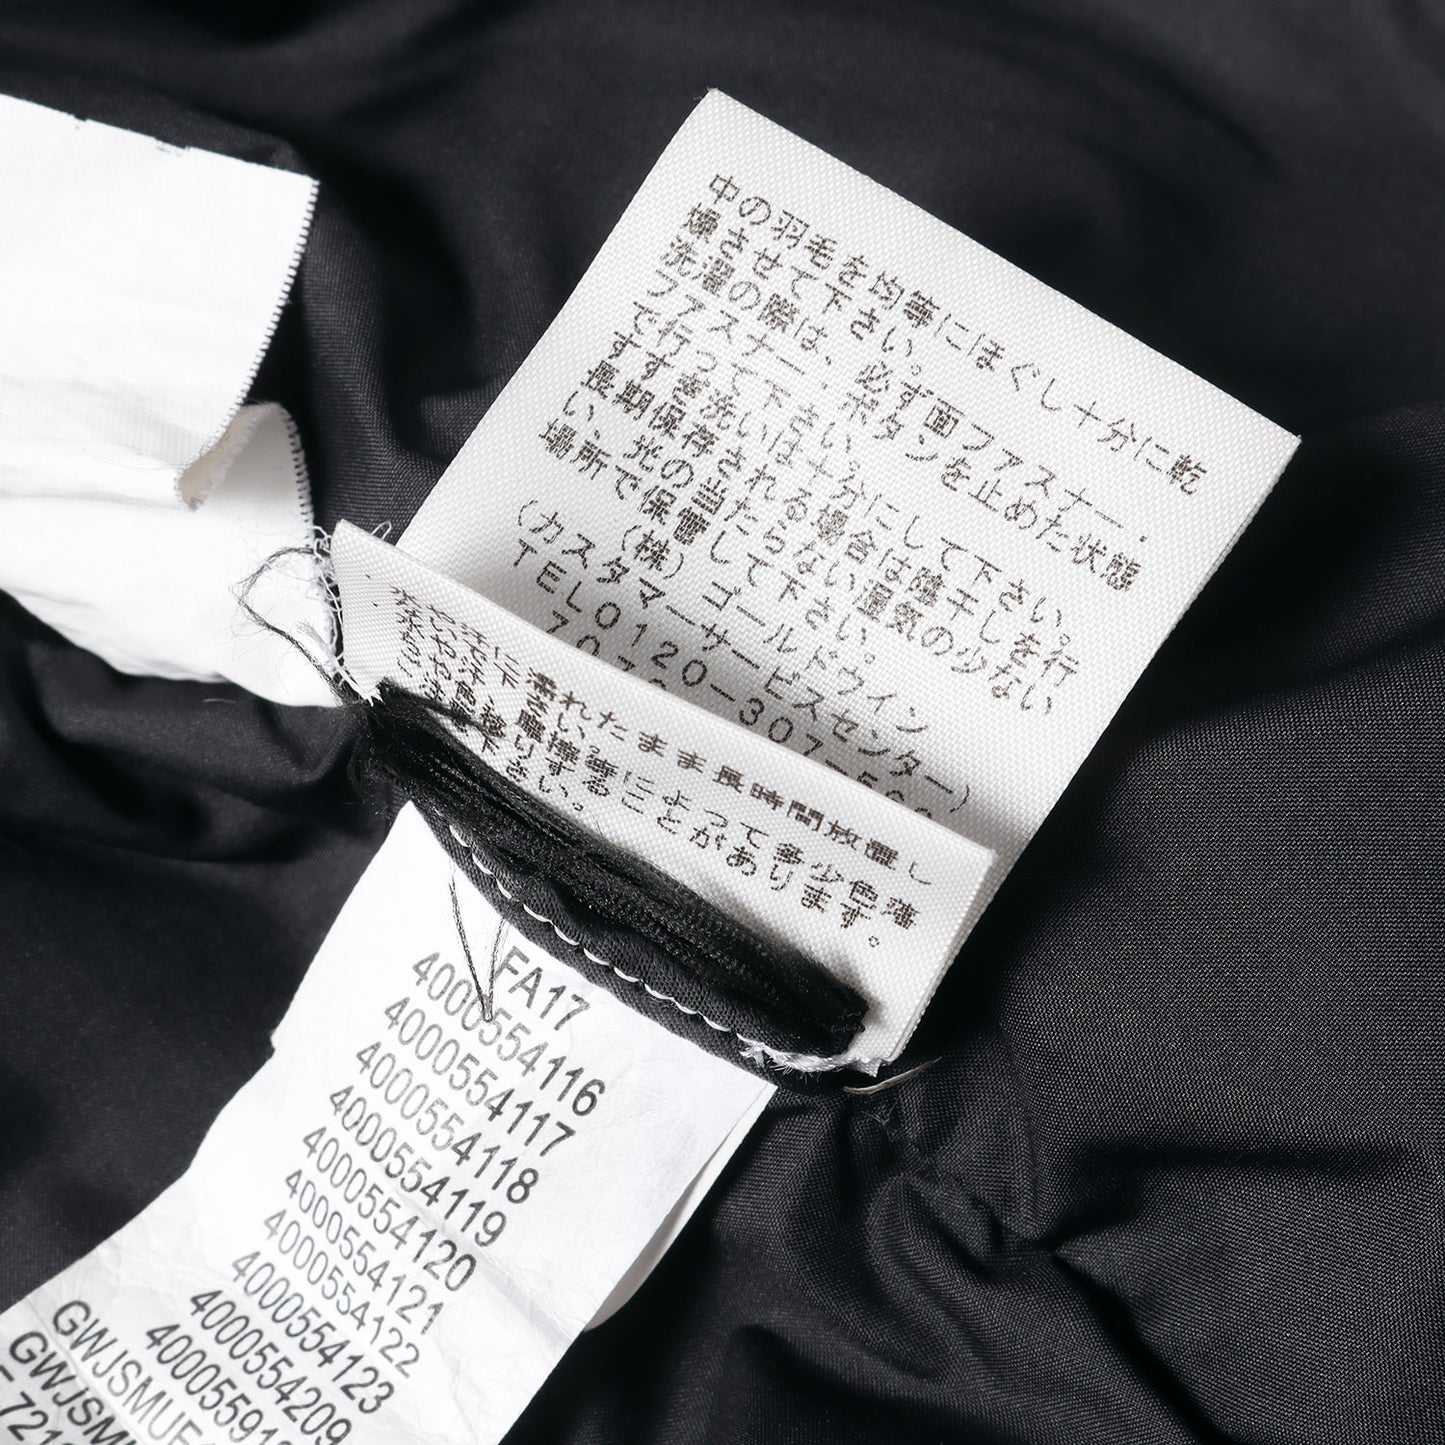 中の羽毛を均等にほぐし十分に乾
燥させて下さい。
洗濯の際は、必ず面ファスナー.
ファスナー、ボタンを止めた状態
で行って下さい。
すすぎ洗いは十分にして下さい。
長期保存される場合は陰干しを行
い、光の当たらない湿気の少ない
場所で保管して下さい。
(株)ゴールドウイン
(カスタマーサービスセンター)
TEL0120-307-560
に濡れたまま長時間放置し
下さい。
摩擦等によって多少色落
移りすることがあります。
下さい。
FA17
4000554116
4000554117
4000554118
4000554119
4000554120
4000554121
4000554122
4000554123
4000554209
40005591
GWJSMUF
GWJSM